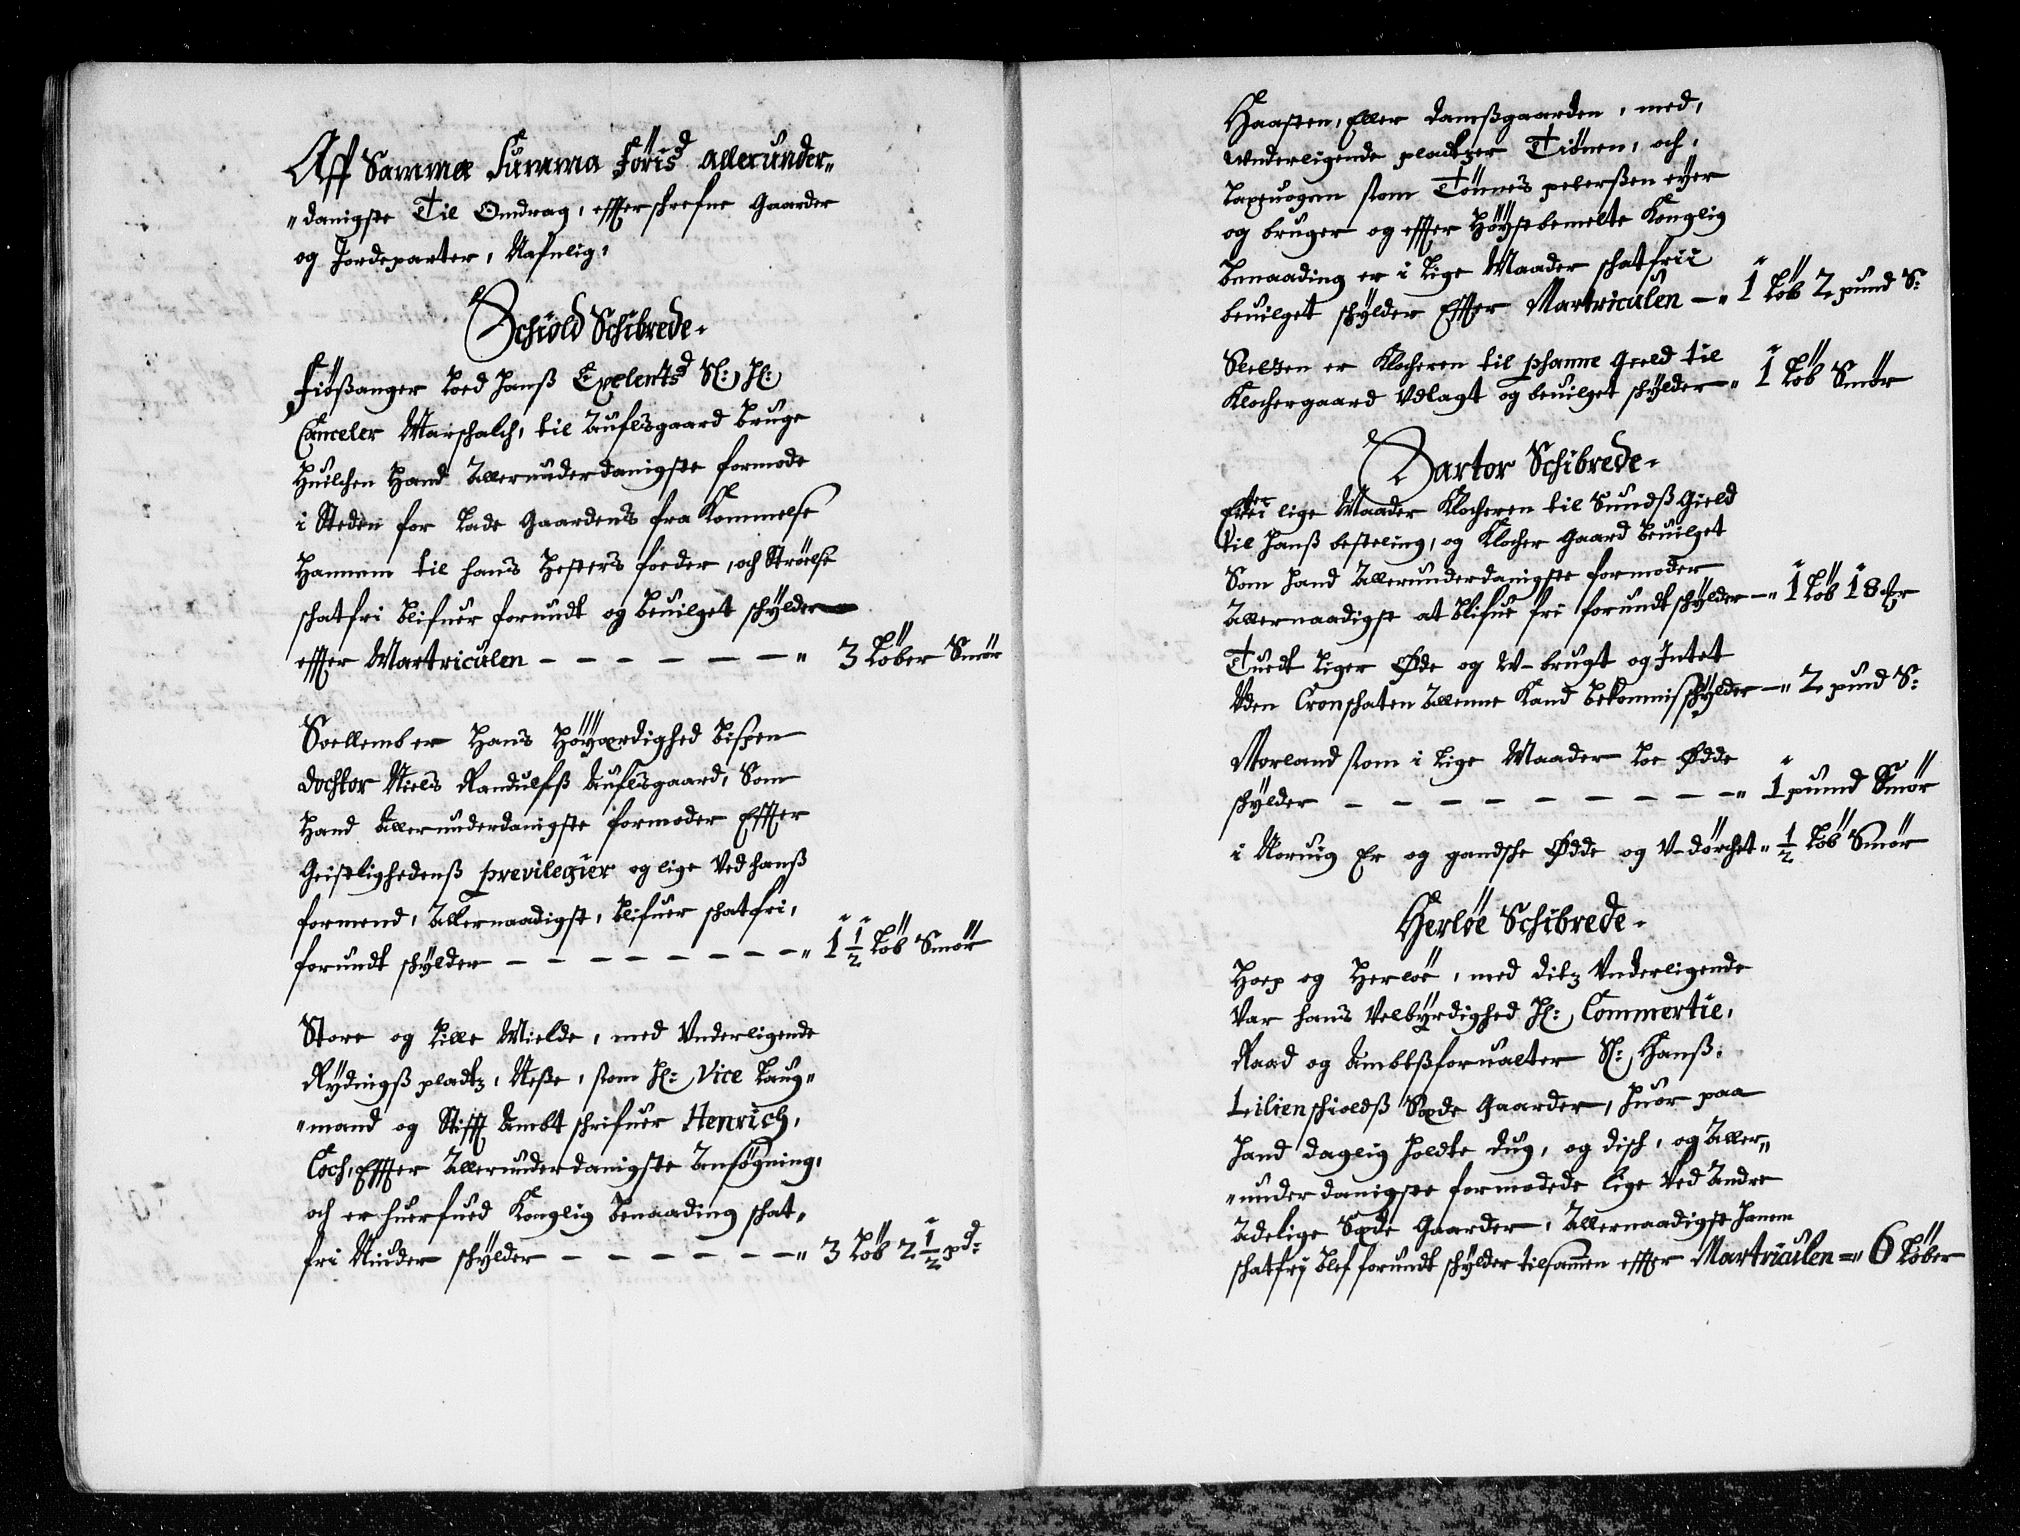 Aff Samme Summa Föris allerunder„
„danigste Til Omdrag, effterschrefne Gaarder
og Jordeparter, Nafnlig,
Schiold Schibrede.
Fiösanger loed Hanss Exelents Sl: Hr:
Canceler Marschalch, til Auflsgaard bruge
Huilchen Hand Allerunderdanigste formode
i Steden for Lade Gaardens fra Kommelse
Hannem til hans Hesters foeder, och Ströelse
schatfri blifuer forundt og beuilget schylder
effter Martriculen — — — — — — „ 3 Löber Smör
Soellemb er Hans Höyærdighed bispen
Dochtor Niels Randulfss Auflsgaard, Som
Hand Allerunderdanigste formoder Effter
Geistlighedenss previlegier og lige Ved hanss
formend, Allernaadigst, blifuer schatfri,
forundt schylder — — — — — — — „ 1 1/2 Löb Smör
Store og Lille Mielde, med Underligende
Rydningss pladtz, Nesse, som Hr: Vice Laug„
„mand og Stifft Ambt schrifuer Henrich,
Coch, Effter Allerunderdanigste Ansögning,
och er huerfued Konglig benaading schat,
fri Niuder schylder — — — — — — „ 3 Löb 2 1/2 pd:
Haasten, Eller Damssgaarden, med,
Underligende pladtzer Tiönen, och,
Laxeuogen som Tönnes peterssen eyer
og bruger og effter Höystbemelte Konglig
benaading er i Lige Maader schatfrii
beuilget schylder Effter Martriculen — „ 1 Löb 2 pund S:
Sletten er Klocheren til phanne Gield til
Klochergaard Udlagt og beuilget schylder „ 1 Löb Smör
Sartor Schibrede.
Er i lige Maader Klocheren til Sundss Gield
til Hanss bestelling, og Klocher Gaard beuilget
Som Hand Allerunderdanigste formoder
Allernaadigst at blifue fri forundt schylder — „ 1 Löb 18 mr
Tuedt Liger Øde og U-brugt og Intet
Uden Cronschaten Allenne Kand bekommis schylder — „ 2 pund S:
Morland som i Lige Maader Loe Ødde
schylder — — — — — — — — — „ 1 pund Smör
i Noruig Er og gandsche Ødde og U-dörchet „ 1/2 Löb Smör
Herløe Schibrede.
Hoep og Herloe, med ditz Underligende
Var hans Velbyrdighed Hr: Commertie,
Raad og Ambtssforualter Sl: Hanss:
Lilienschioldss Sæde Gaarder, huor paa
Hand daglig holdte dug, og disch, og Aller„
„under danigste formodede lige Ved Andre
Adelige Sæde Gaarder, Allernaadigst Hanem
schatfrj blef forundt schylder tilsammen effter Martriculen = „ 6 Löber